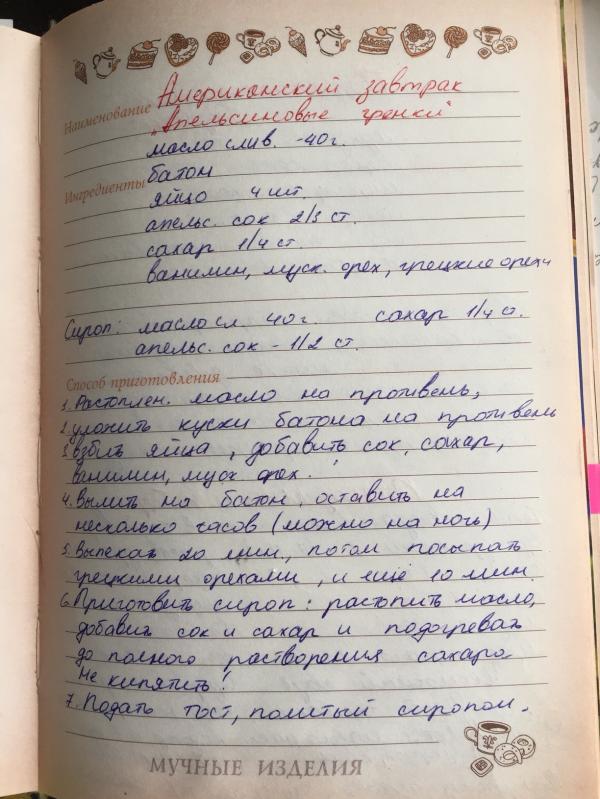 Наименование Американский завтрак
„Апельсиновые гренки"
масло слив. -40г.
Ингредиенты батон
яйцо 4 шт.
апельс. сок 2/3 ст.
сахар 1/4 ст.
ванилин, муск. орех, грецкие орехи
Сироп: масло сл. 40г. сахар 1/4 ст.
апельс. сок - 1/2 ст.
Способ приготовления
1. Растоплен. масло на противень,
2. уложить куски батона на противень
3. взбить яйца, добавить сок, сахар,
ванилин, муск. орех.
4. Вылить на батон, оставить на
несколько часов (можно на ночь)
5. Выпекать 20 мин, потом посыпать
грецкими орехами, и ещё 10 мин.
6. Приготовить сироп: растопить масло,
добавить сок и сахар и подогревать
до полного растворения сахара.
Не кипятить!
7. Подать тост, политый сиропом.
МУЧНЫЕ ИЗДЕЛИЯ